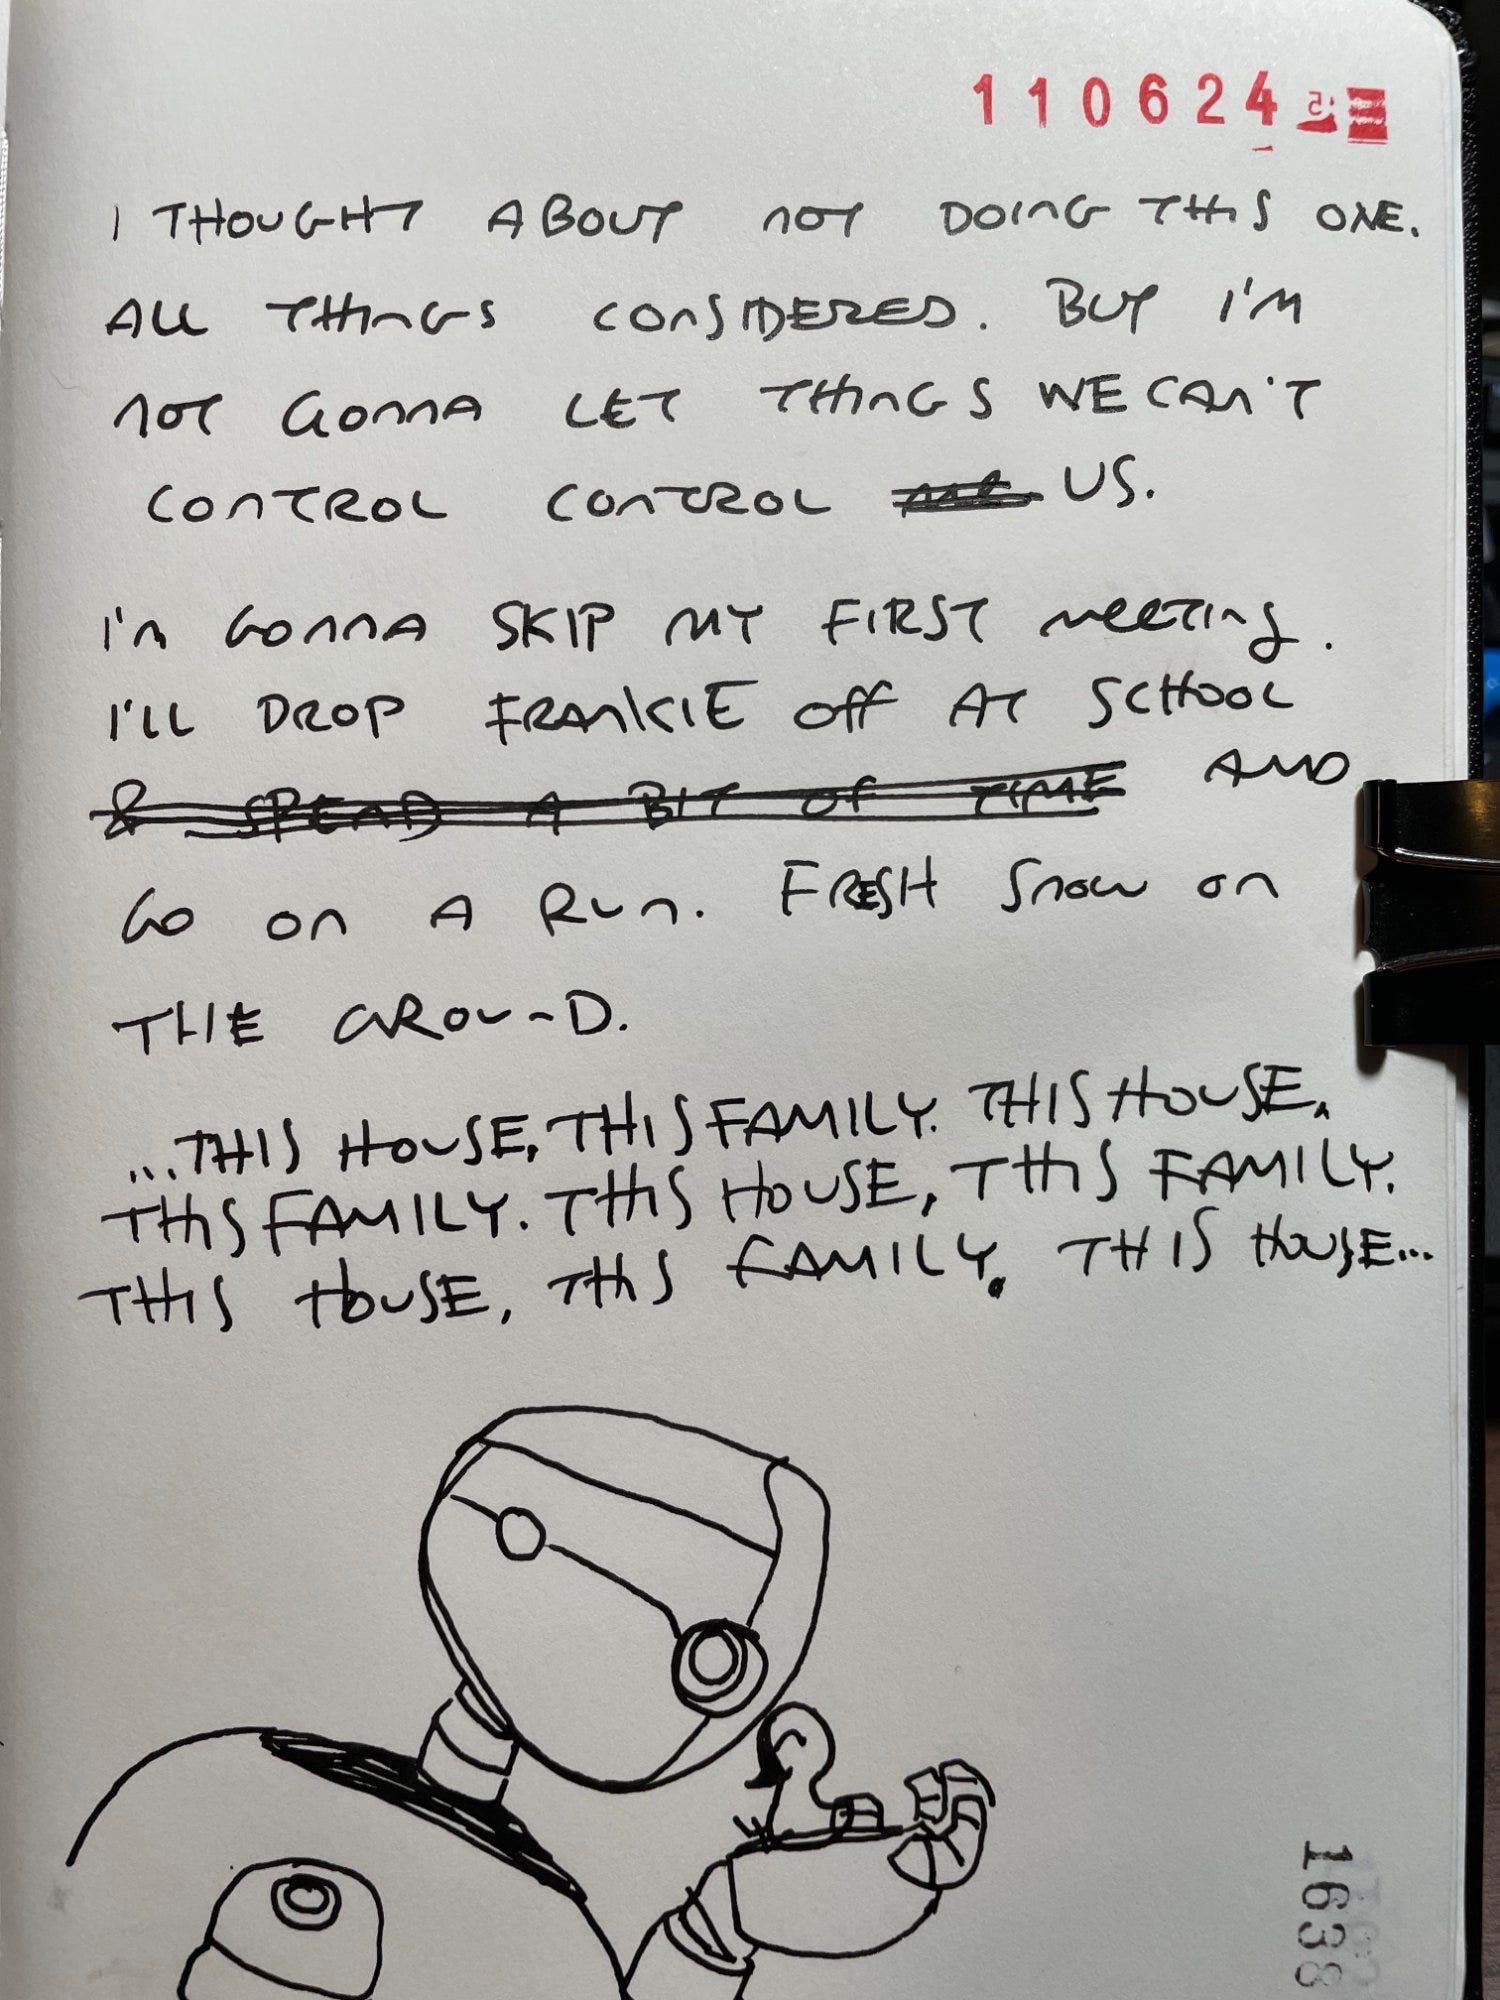 110624
I THOUGHT ABOUT NOT DOING THIS ONE.
ALL THINGS CONSIDERED. BUT I'M
NOT GONNA LET THINGS WE CAN'T
CONTROL CONTROL me US.
I'M GONNA SKIP MY FIRST MEETING.
I'LL DROP FRANKIE OFF AT SCHOOL
& SPEND A BIT OF TIME AND
GO ON A RUN. FRESH SNOW ON
THE GROUND.
...THIS HOUSE, THIS FAMILY. THIS HOUSE,
THIS FAMILY. THIS HOUSE, THIS FAMILY.
THIS HOUSE, THIS FAMILY. THIS HOUSE...
1638